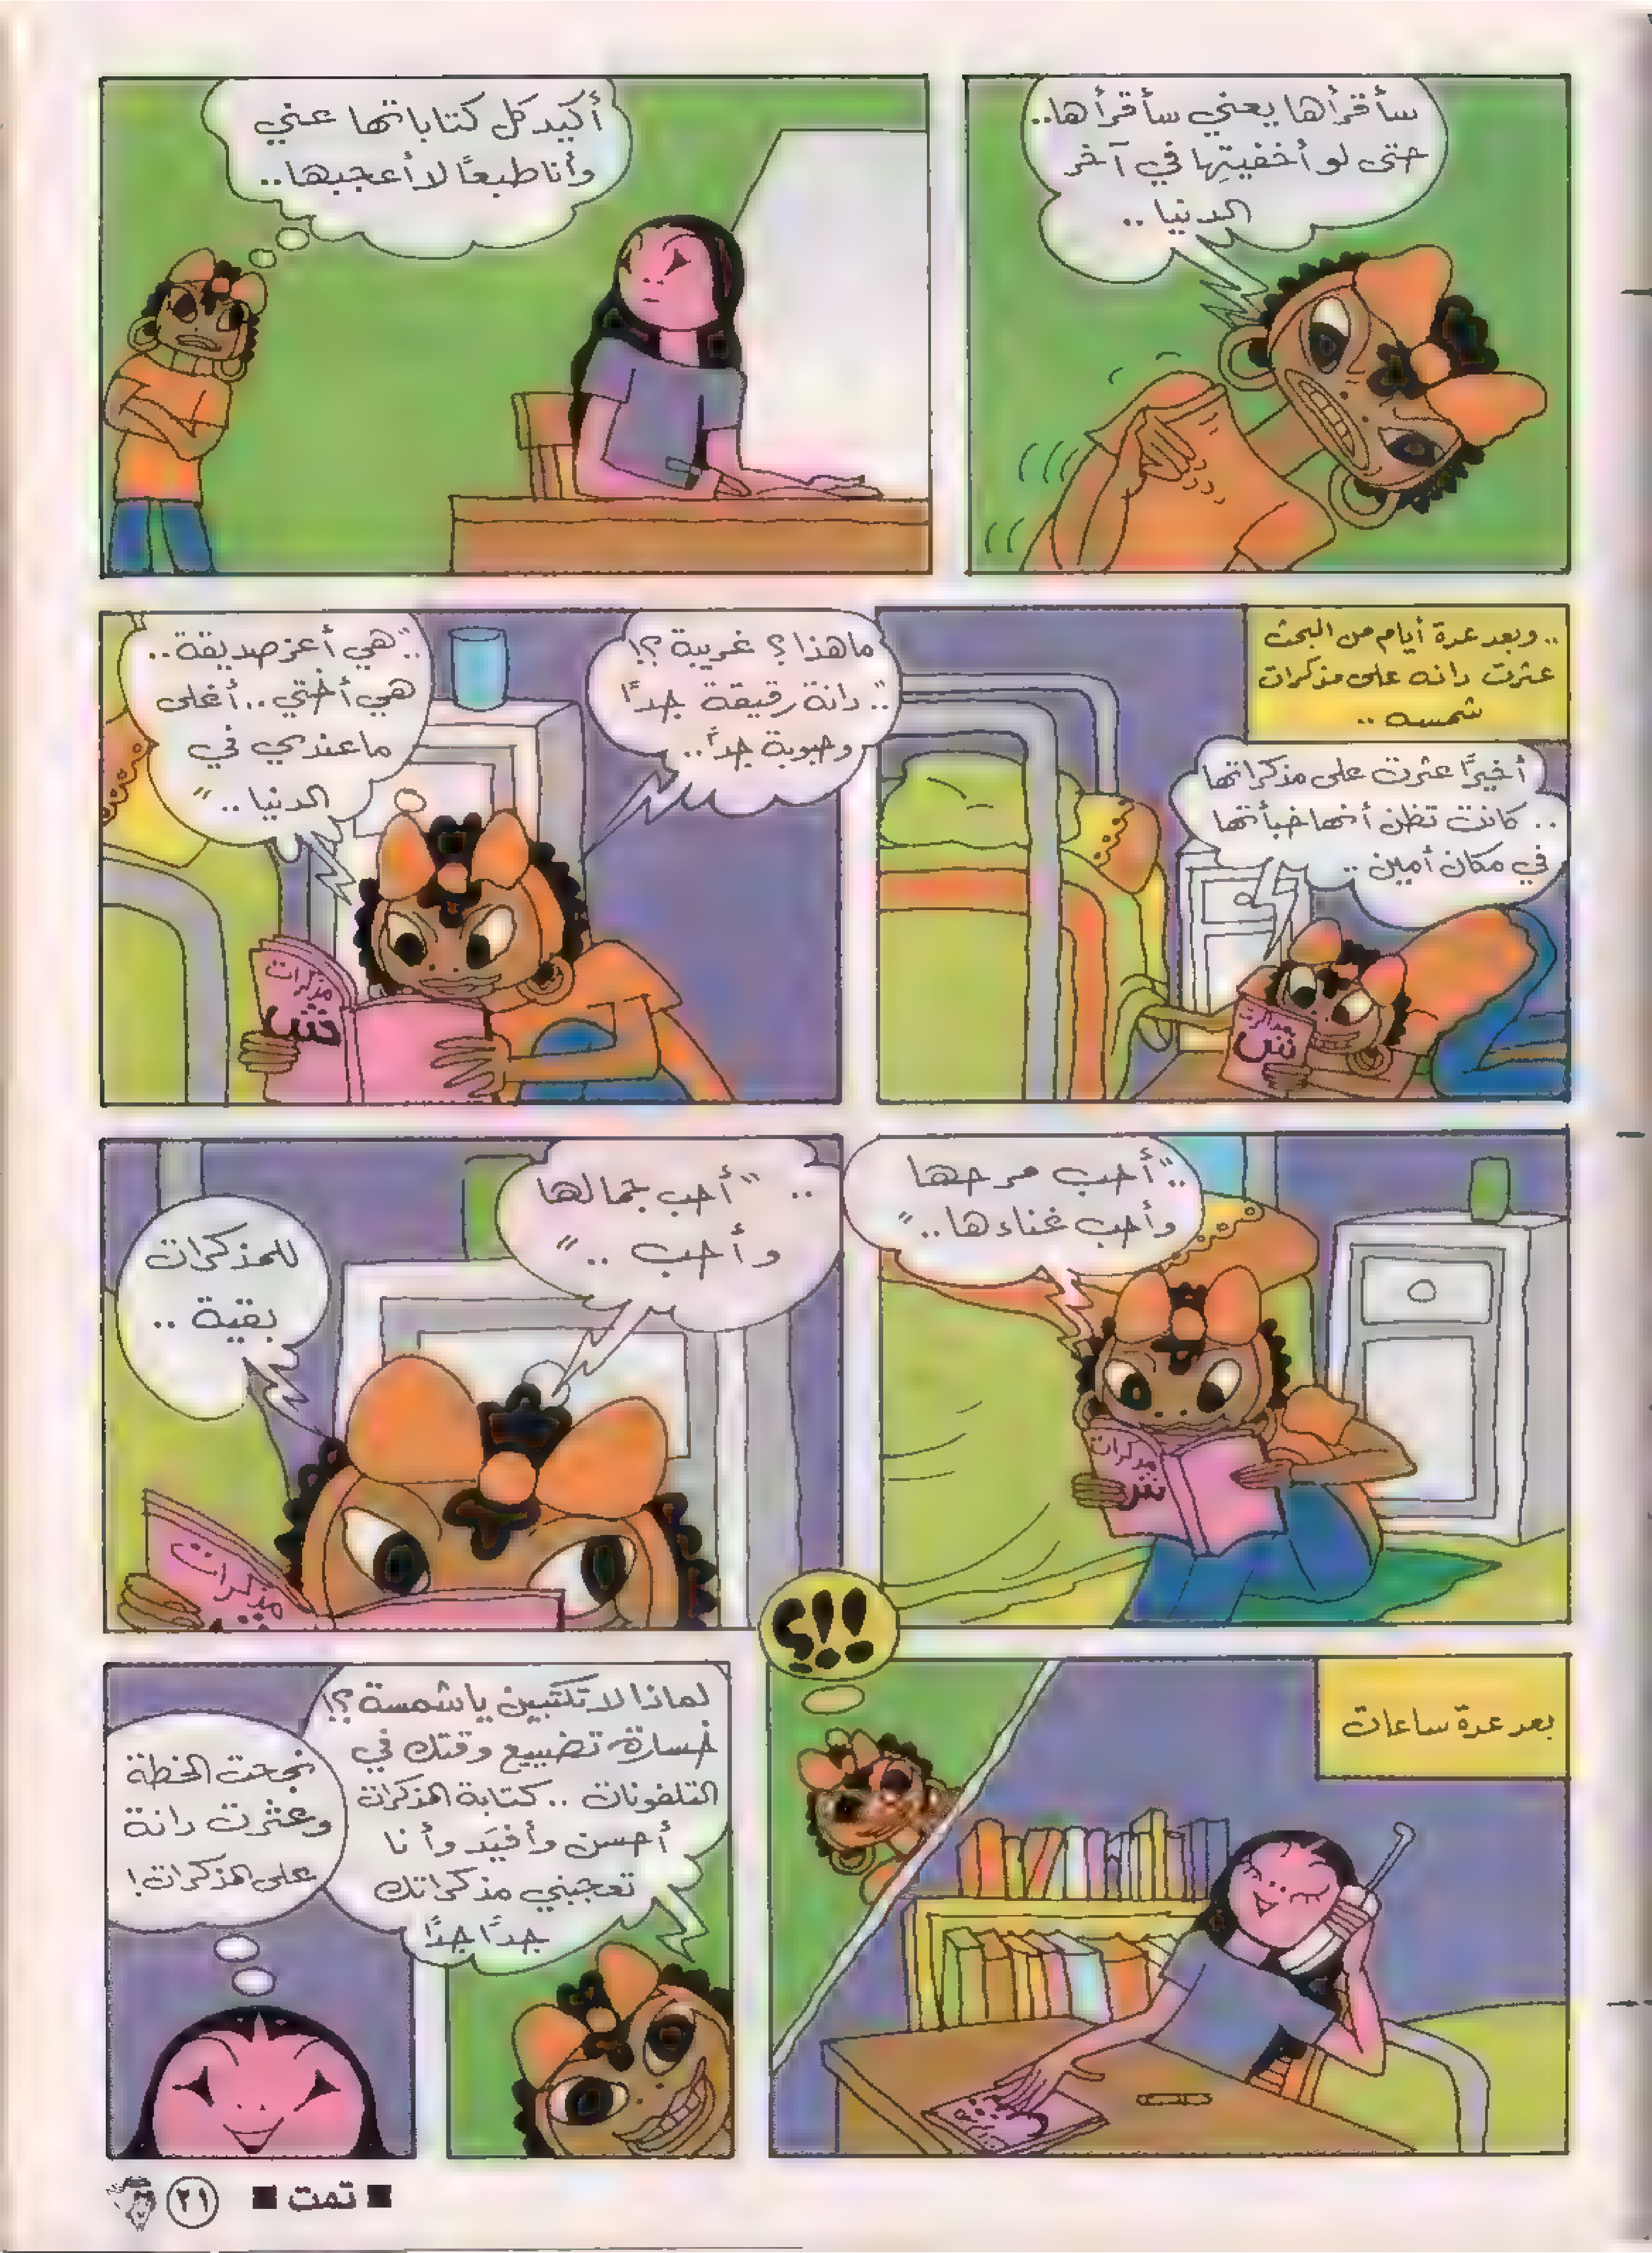 سأقرأها يعني سأقرأها..
حتى لو أخفيتِها في آخر
الدنيا ..
أكيد كل كتاباتها عني
وأنا طبعًا لا أعجبها..
.. وبعد عدة أيام من البحث
عثرت دانه على مذكرات
شمسه ..
أخيرًا عثرت على مذكراتها
.. كانت تظن أنها خبأتها
في مكان أمين ..
مذكرات
ش
ما هذا؟ غريبة ؟!
.."دانة رقيقة جدًا
وحبوبة جدًا..
.."هي أعز صديقة..
هي أختي .. أغلى
ما عندي في
الدنيا .."
مذكرات
ش
.."أحب مرحها
وأحب غناءها.."
مذكرات
ش
.. "أحب جمالها
وأحب .. "
للمذكرات
بقية ..
مذكرات
بعد عدة ساعات
!!؟
لماذا لا تكتبين يا شمسة؟!
خسارة تضييع وقتك في
التلفونات .. كتابة المذكرات
أحسن وأفيَد وأنا
تعجبني مذكراتك
جدًا جدًا
نجحت الخطة
وعثرت دانة
على المذكرات!
■ تمت ■
٢١